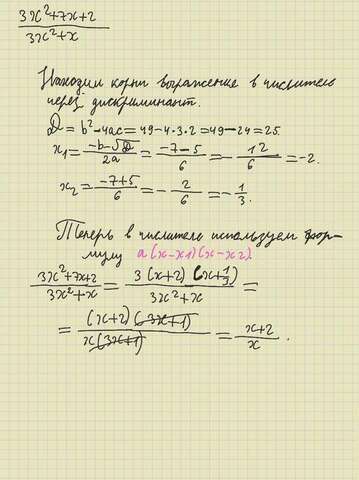 3x²+7x+2 / 3x²+x
Находим корни выражение в числителе
через дискриминант.
D = b²-4ac = 49-4·3·2 = 49-24 = 25
x₁ = (-b-√D)/2a = (-7-5)/6 = -12/6 = -2.
x₂ = (-7+5)/6 = -2/6 = -1/3.
Теперь в числителе используем фор-
мулу a(x-x1)(x-x2)
(3x²+7x+2)/(3x²+x) = 3(x+2)(x+1/3)/(3x²+x) =
= (x+2)(3x+1)/x(3x+1) = (x+2)/x.